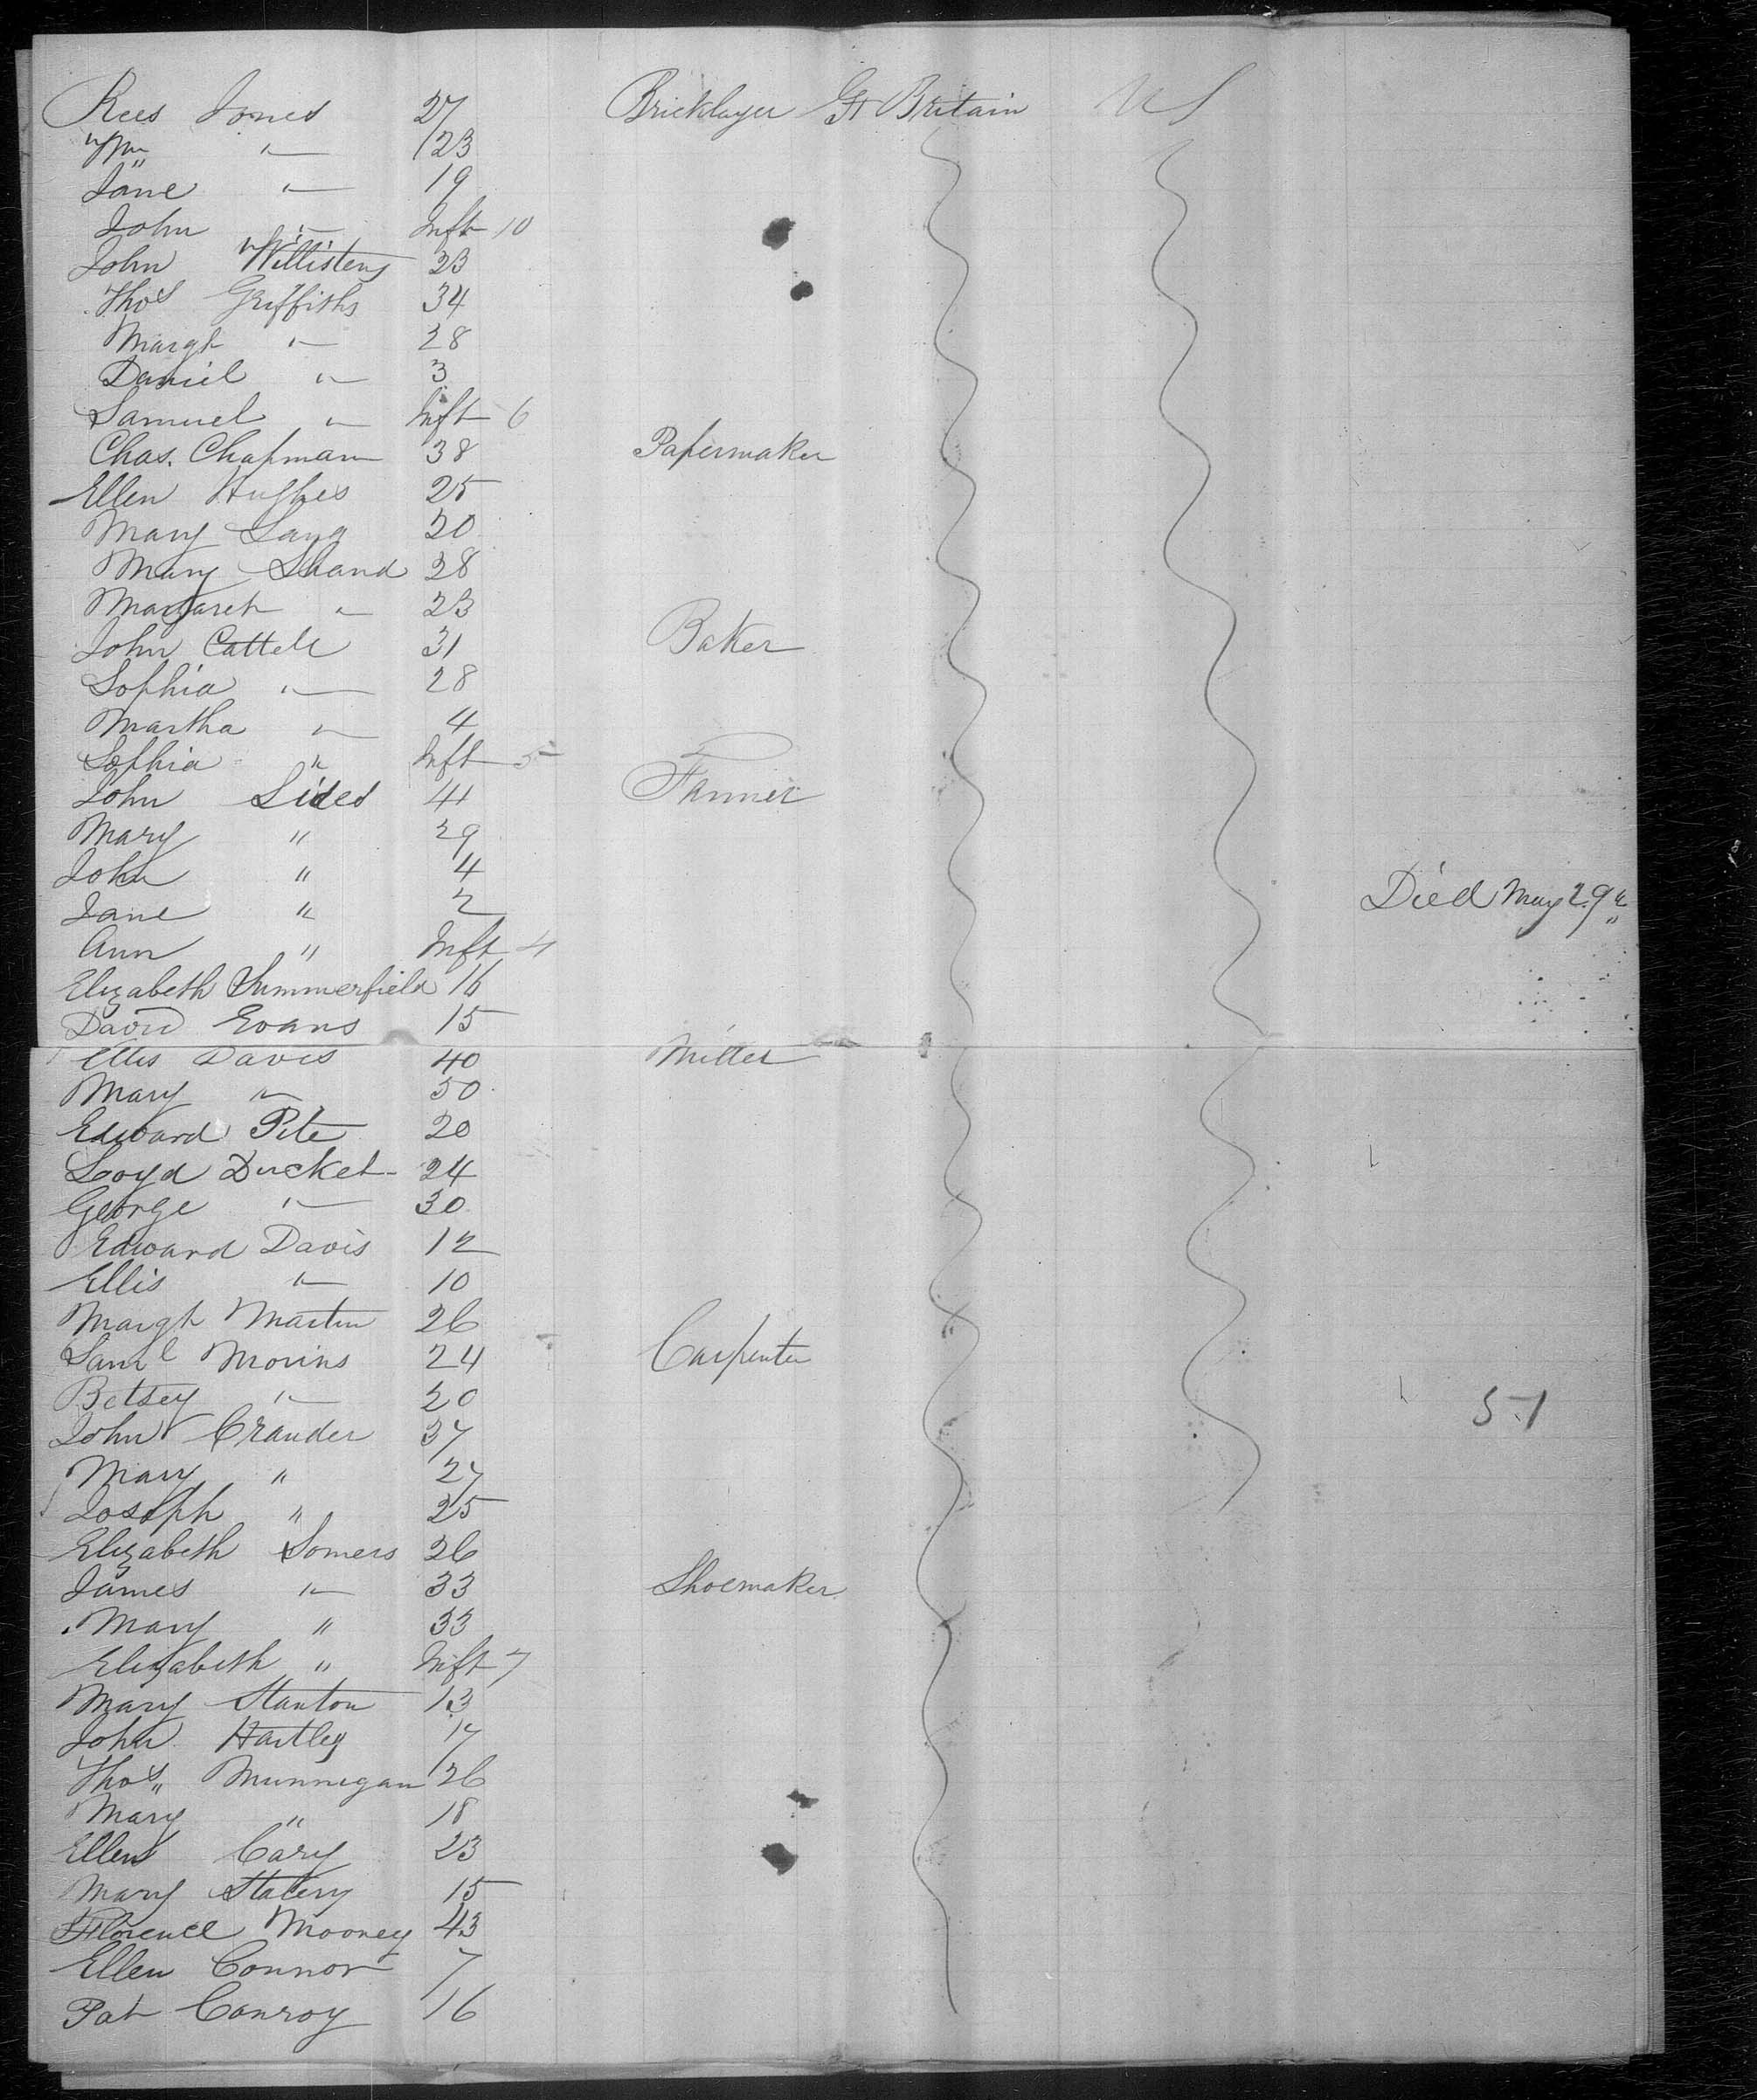 Rees Jones 27 Bricklayer Gt Britain US
Wm " 23
Jane " 19
John " Inft 10
John 23
Thos Griffiths 34
Margt " 28
Daniel " 3
Samuel " Inft 6
Chas. Chapman 38 Papermaker
Ellen Hughes 25
Mary Lang 20
Mary Shand 38
Margaret " 23
John Cattell 31 Baker
Sophia " 28
Martha " 4
Sophia " Inft 5
John Sides 41 Farmer
Mary " 29
John " 4
Jane " 2 Died May 29th
Ann " Inft 4
Elizabeth Summerfield 16
David Evans 15
Ellis Davis 40 Miller
Mary " 50
Edward Pite 20
Loyd Ducket 24
George " 30
Edward Davis 12
Ellis " 10
Margt Martin 26
Saml 24 Carpenter
Betsey " 20 51
John Crauder 37
Mary " 27
Joseph " 25
Elizabeth Somers 26
James " 33 Shoemaker
Mary " 33
Elizabeth " Inft 7
Mary Stanton 13
John Hartley 17
Thos Munnegan 26
Mary " 18
Ellen Cary 23
Mary 15
Florence Mooney 43
Ellen Connor 7
Pat Conroy 16